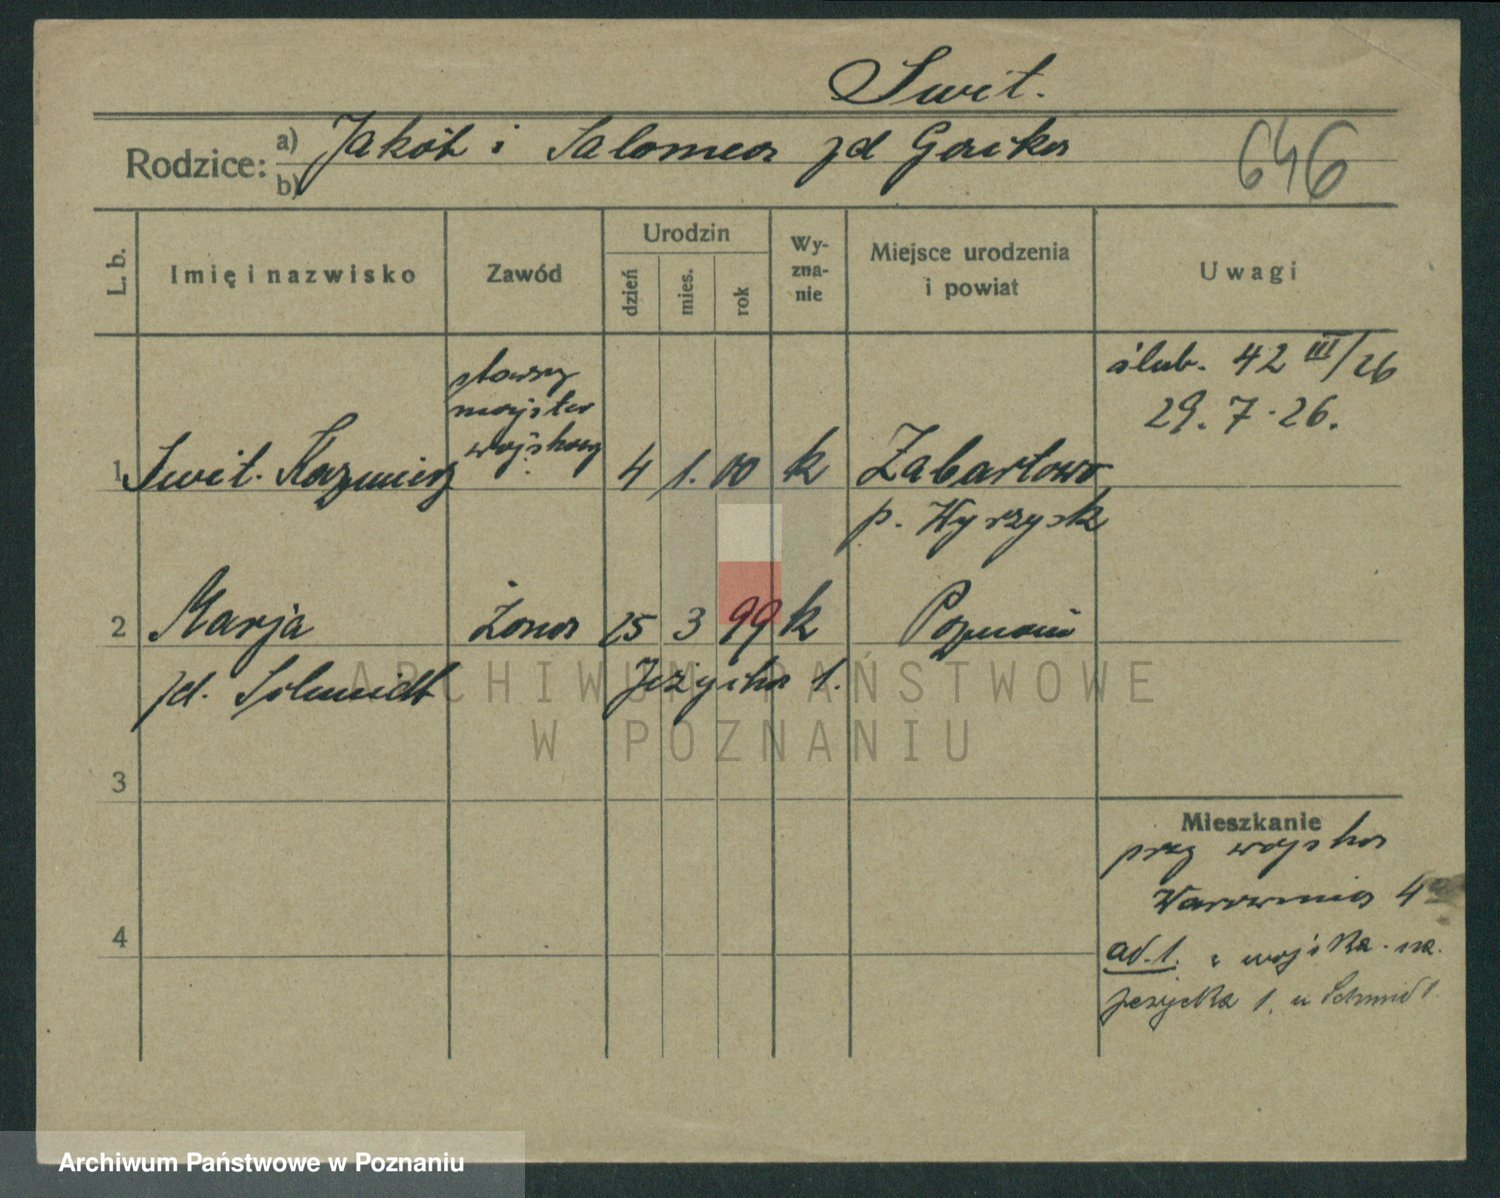 Swit.
Rodzice: a) Jakób i Salomea zd Gerika
b)
646
L. b.
Imię i nazwisko
Zawód
Urodzin
dzień
mies.
rok
Wy-
zna-
nie
Miejsce urodzenia
i powiat
Uwagi
ślub. 42 III/26
29. 7. 26.
starszy
majster
wojskowy
1 Swit. Kazmierz 4 1. 00 k Zabartowo
p. Wyrzysk
2 Marja Żona 25 3 99 k Poznań
zd. Schmidt Jeżycka 1.
3
4
Mieszkanie
przy wojska
Warownia 4
ad. 1. z wojska na.
Jeżycka 1. u Schmidt.
ARCHIWUM PAŃSTWOWE
W POZNANIU
Archiwum Państwowe w Poznaniu